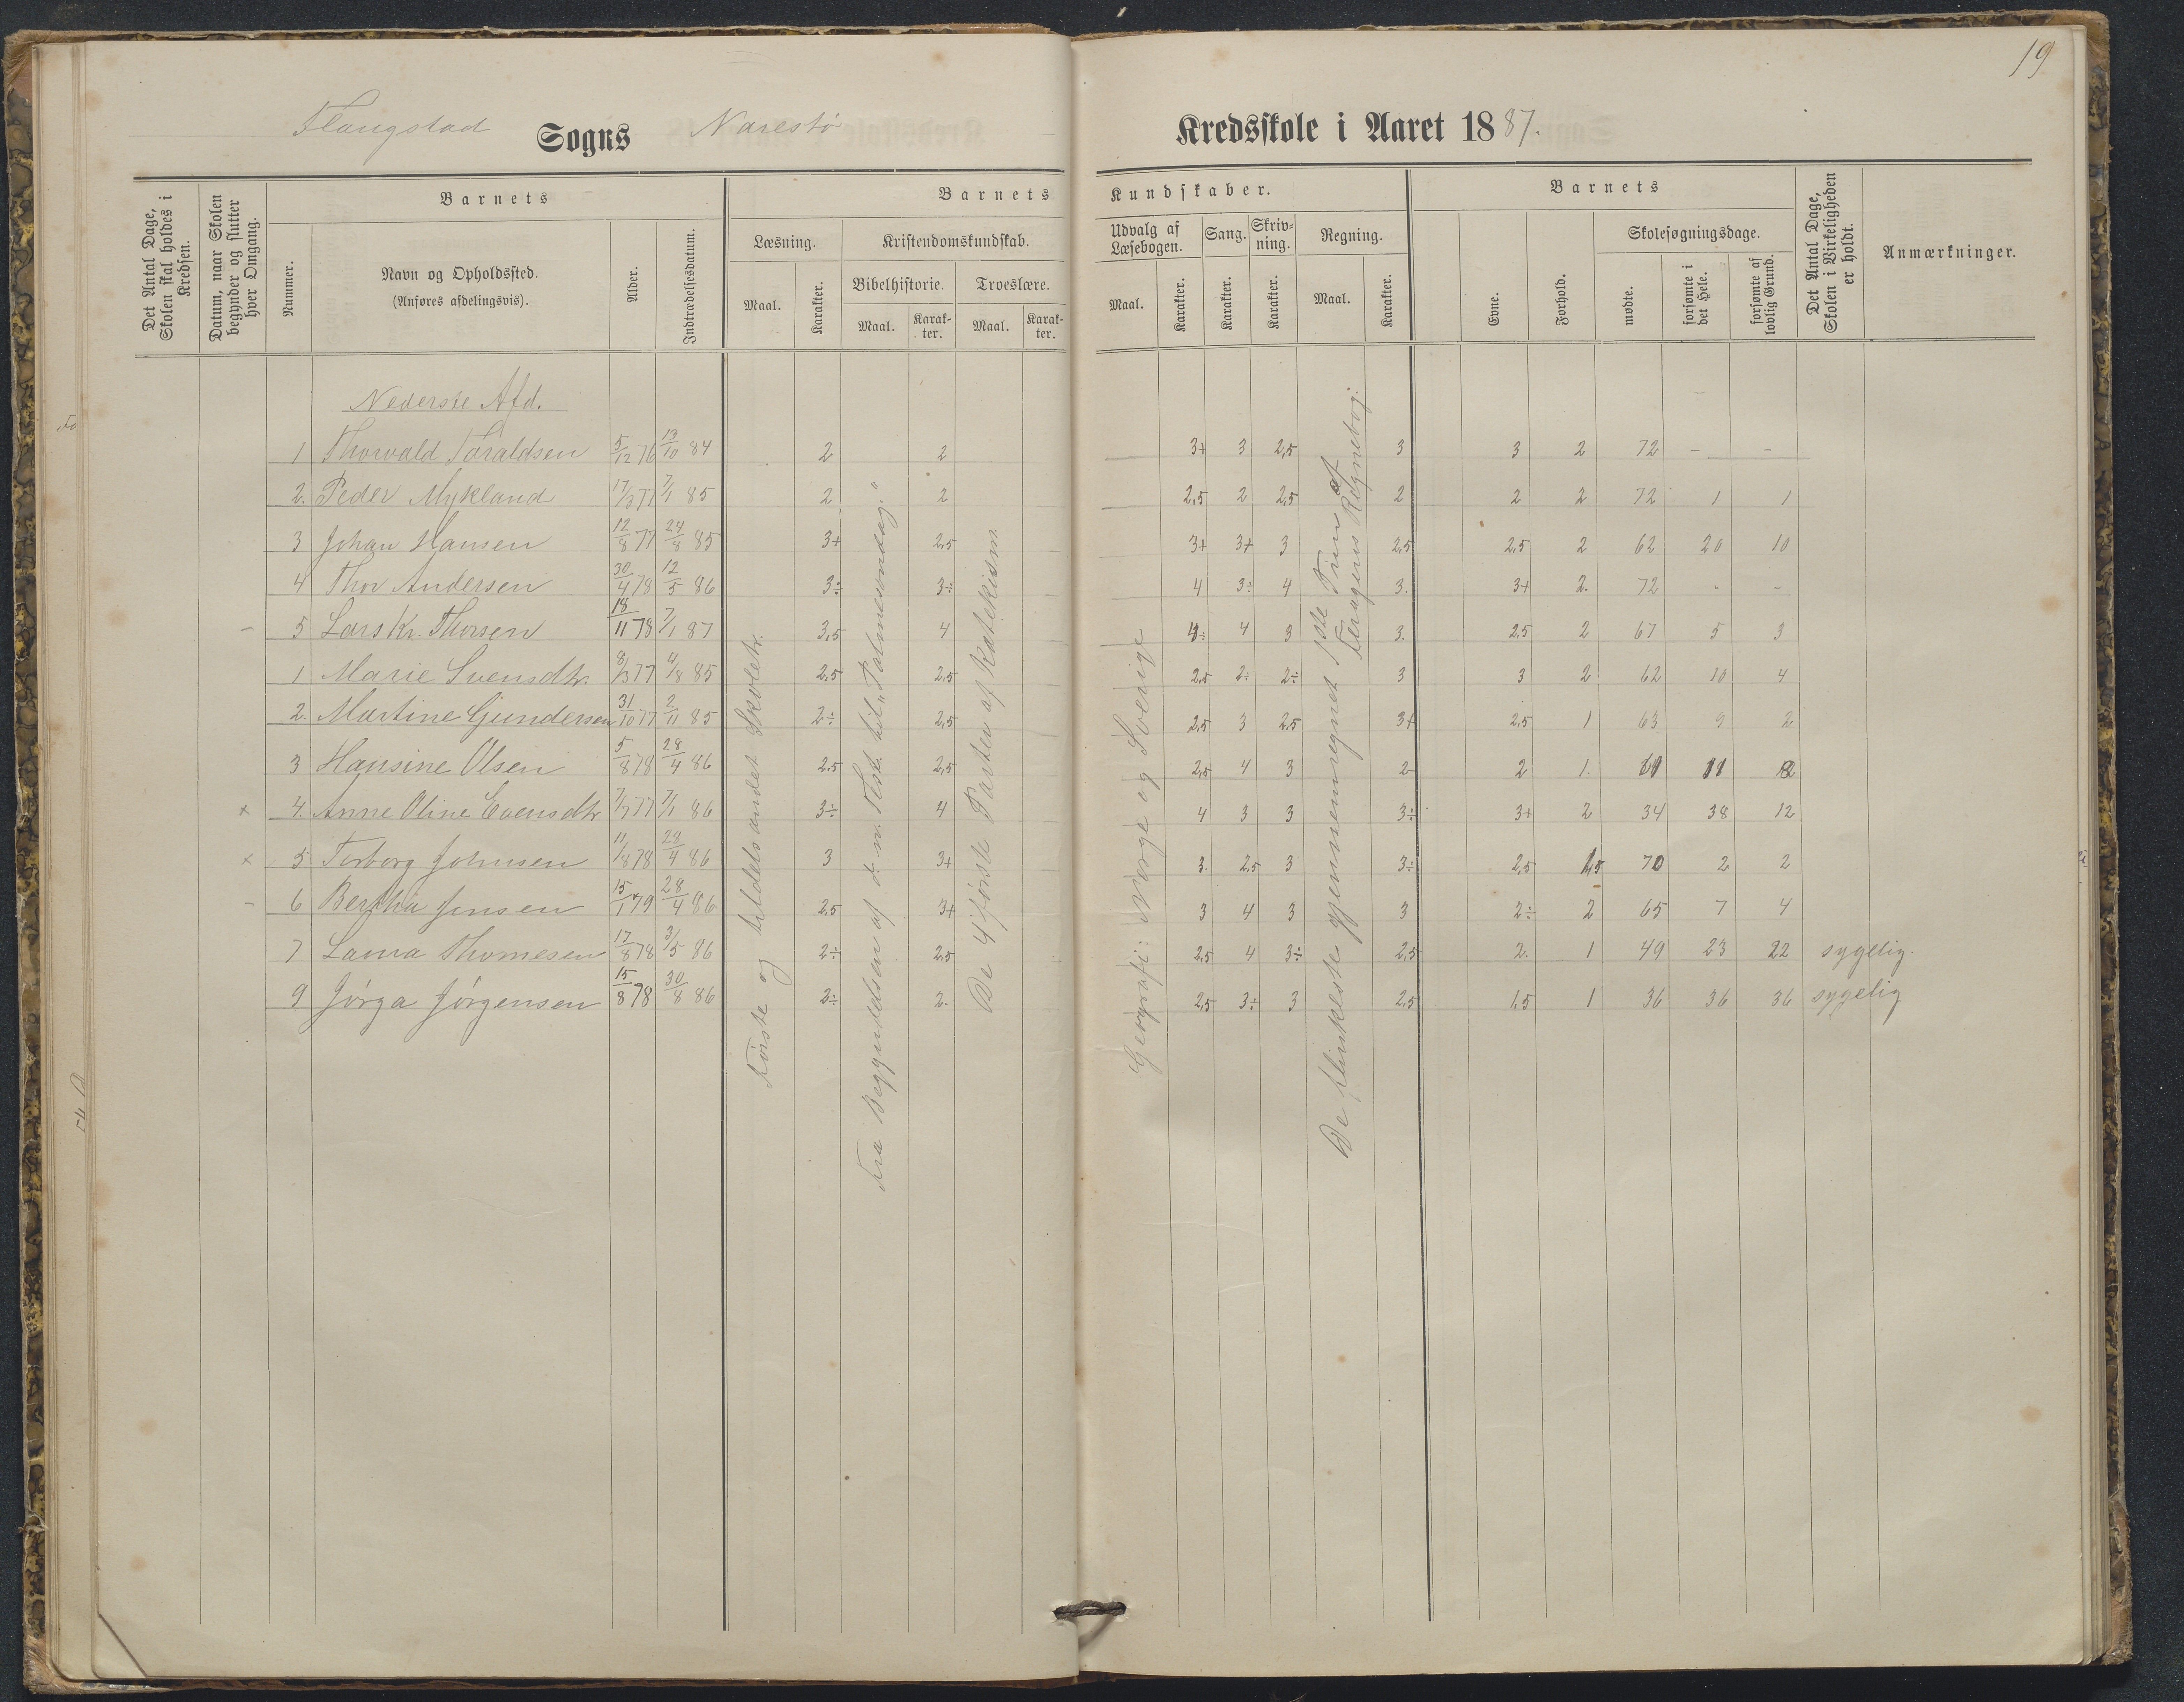 19
Flangstad Sogns Narestø Kredsskole i Aaret 1887.
Det Antal Dage, Skolen skal holdes i Kredsen.
Datum, naar Skolen begynder og slutter hver Omgang.
Barnets
Nummer.
Navn og Opholdssted.
(Anføres afdelingsvis).
Alder.
Indtrædelsesdatum.
Barnets Kundskaber.
Læsning.
Maal. Karakter.
Kristendomskundskab.
Bibelhistorie. Troeslære.
Maal. Karakter. Maal. Karakter.
Udvalg af Læsebogen.
Maal. Karakter.
Sang. Karakter.
Skrivning. Karakter.
Regning.
Maal. Karakter.
Barnets
Evne. Forhold.
Skolesøgningsdage.
mødte. forsømte i det Hele. forsømte af lovlig Grund.
Det Antal Dage, Skolen i Virkeligheden er holdt.
Anmærkninger.
Nederste Afd.
1 Thorvald Taraldsen 5/12 76 13/10 84 2 2 3+ 3 2,5 3 3 2 72 - -
2. Peder Mykland 17/3 77 7/1 85 2 2 2,5 2 2,5 2 2 2 72 1 1
3 Johan Hansen 12/8 77 24/8 85 3+ 2,5 3+ 3+ 3 2,5 2,5 2 62 20 10
4 Thor Andersen 30/4 78 12/5 86 3÷ 3÷ 4 3÷ 4 3. 3+ 2. 72 - -
- 5 Lars Kr. Thorsen 18/11 78 7/1 87 3,5 4 4÷ 4 3 3. 2,5 2 67 5 3
1 Marie Svensdtr. 8/3 77 4/8 85 2,5 2,5 2,5 2÷ 2÷ 3 3 2 62 10 4
2. Martine Gundersen 31/10 77 2/11 85 2÷ 2,5 2,5 3 2,5 3+ 2,5 1 63 9 2
3 Hansine Olsen 5/8 78 28/4 86 2,5 2,5 2,5 4 3 2- 2 1. 61 11
× 4. Anne Oline Evensdtr 7/7 77 7/1 86 3÷ 4 4 3 3 3÷ 3+ 2 34 38 12
× 5 Torborg Johnsen 11/8 78 29/4 86 3 3+ 3. 2,5 3 3÷ 2,5 1,5 70 2 2
- 6 Bertha Jensen 15/1 79 28/4 86 2,5 3+ 3 4 3 3 2÷ 2 65 7 4
7 Laura Thomesen 17/8 78 3/5 86 2÷ 2,5 2,5 4 3÷ 2,5 2. 1 49 23 22 sygelig.
9 Jørga Jørgensen 15/8 78 30/8 86 2÷ 2. 2,5 3÷ 3 2,5 1,5 1 36 36 36 sygelig
Første og tildels andet Skoletr.
Fra Begyndelsen af d. n. Test. til "Palmesøndag."
De 4 første Parter af Katekism.
Geografi: Norge og Sverige
De flinkeste gjennemregnet 1ste Trin af
Feragens Regnebog.